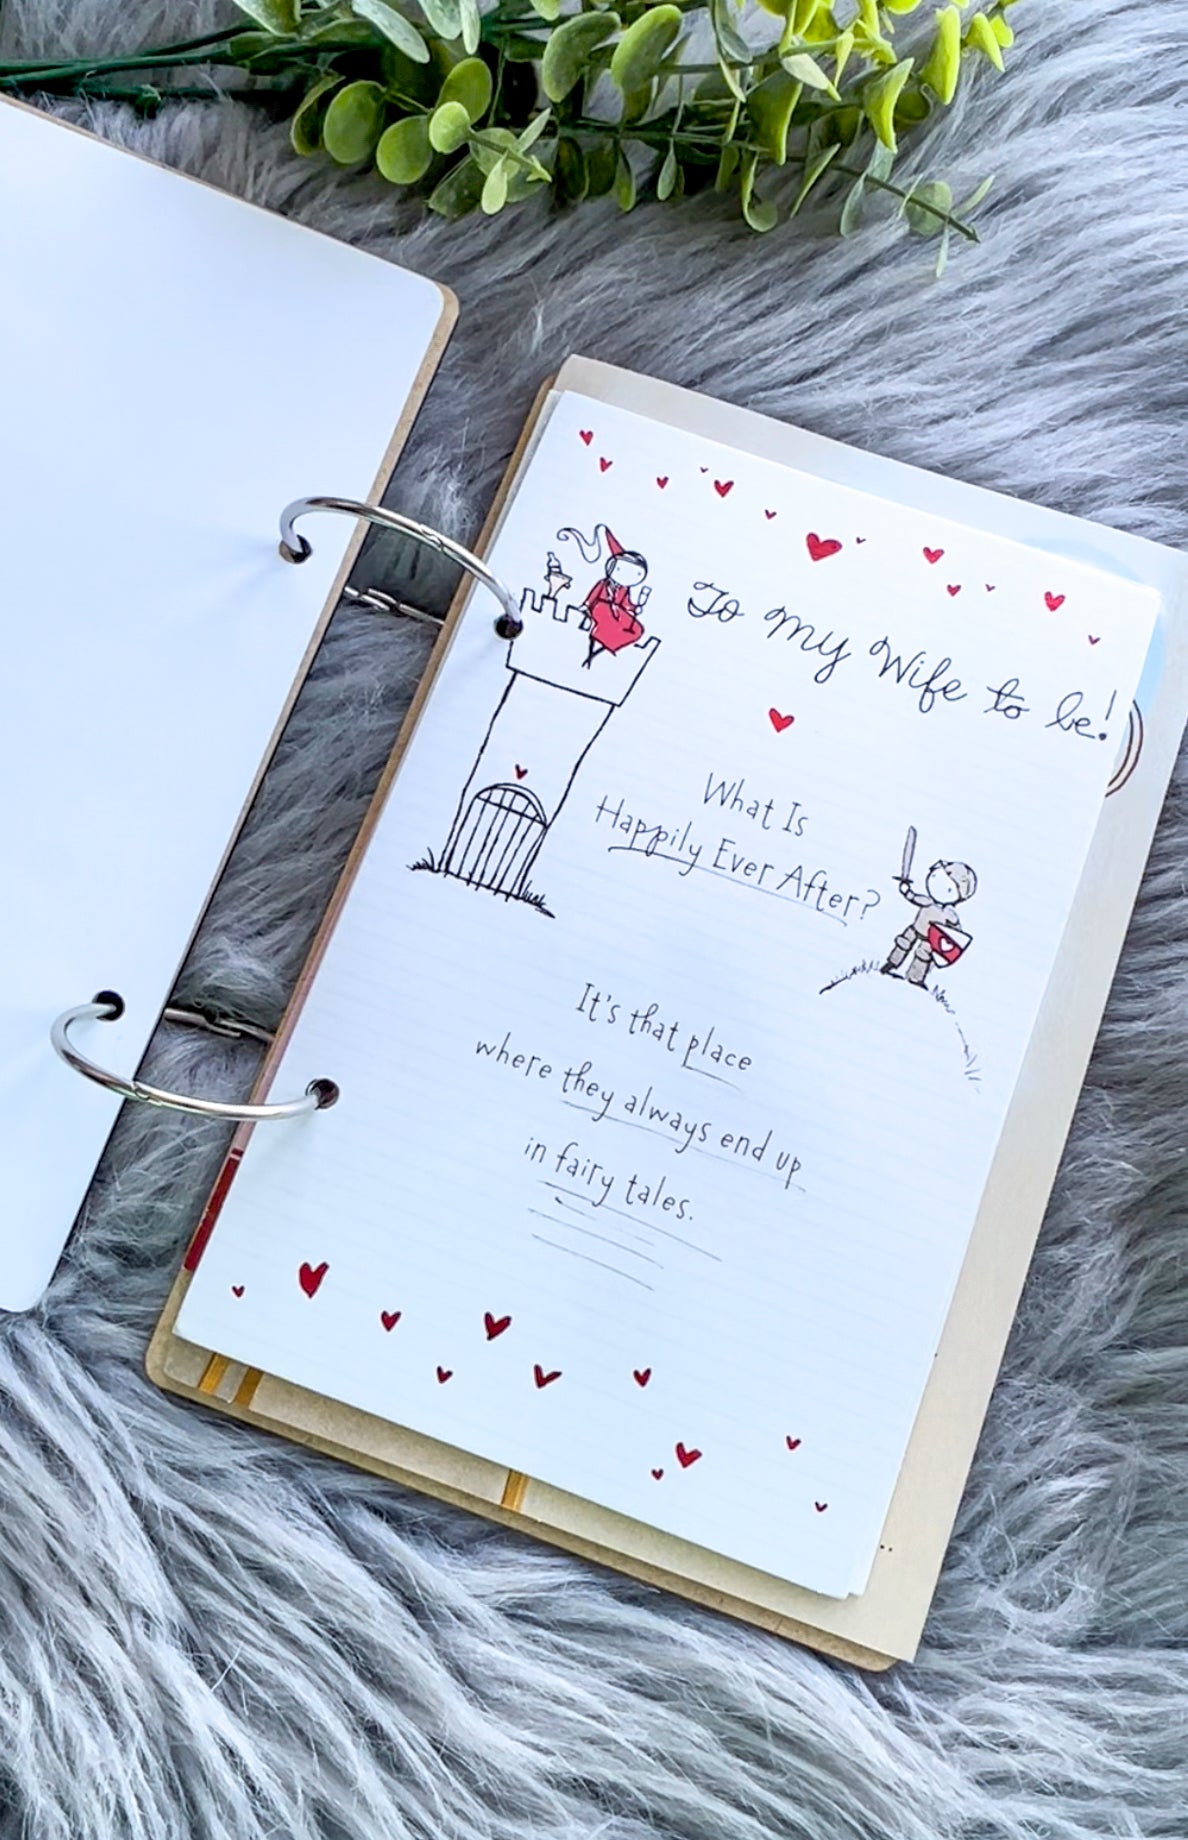 To My Wife to be!
What Is
Happily Ever After?
It's that place
where they always end up
in fairy tales.